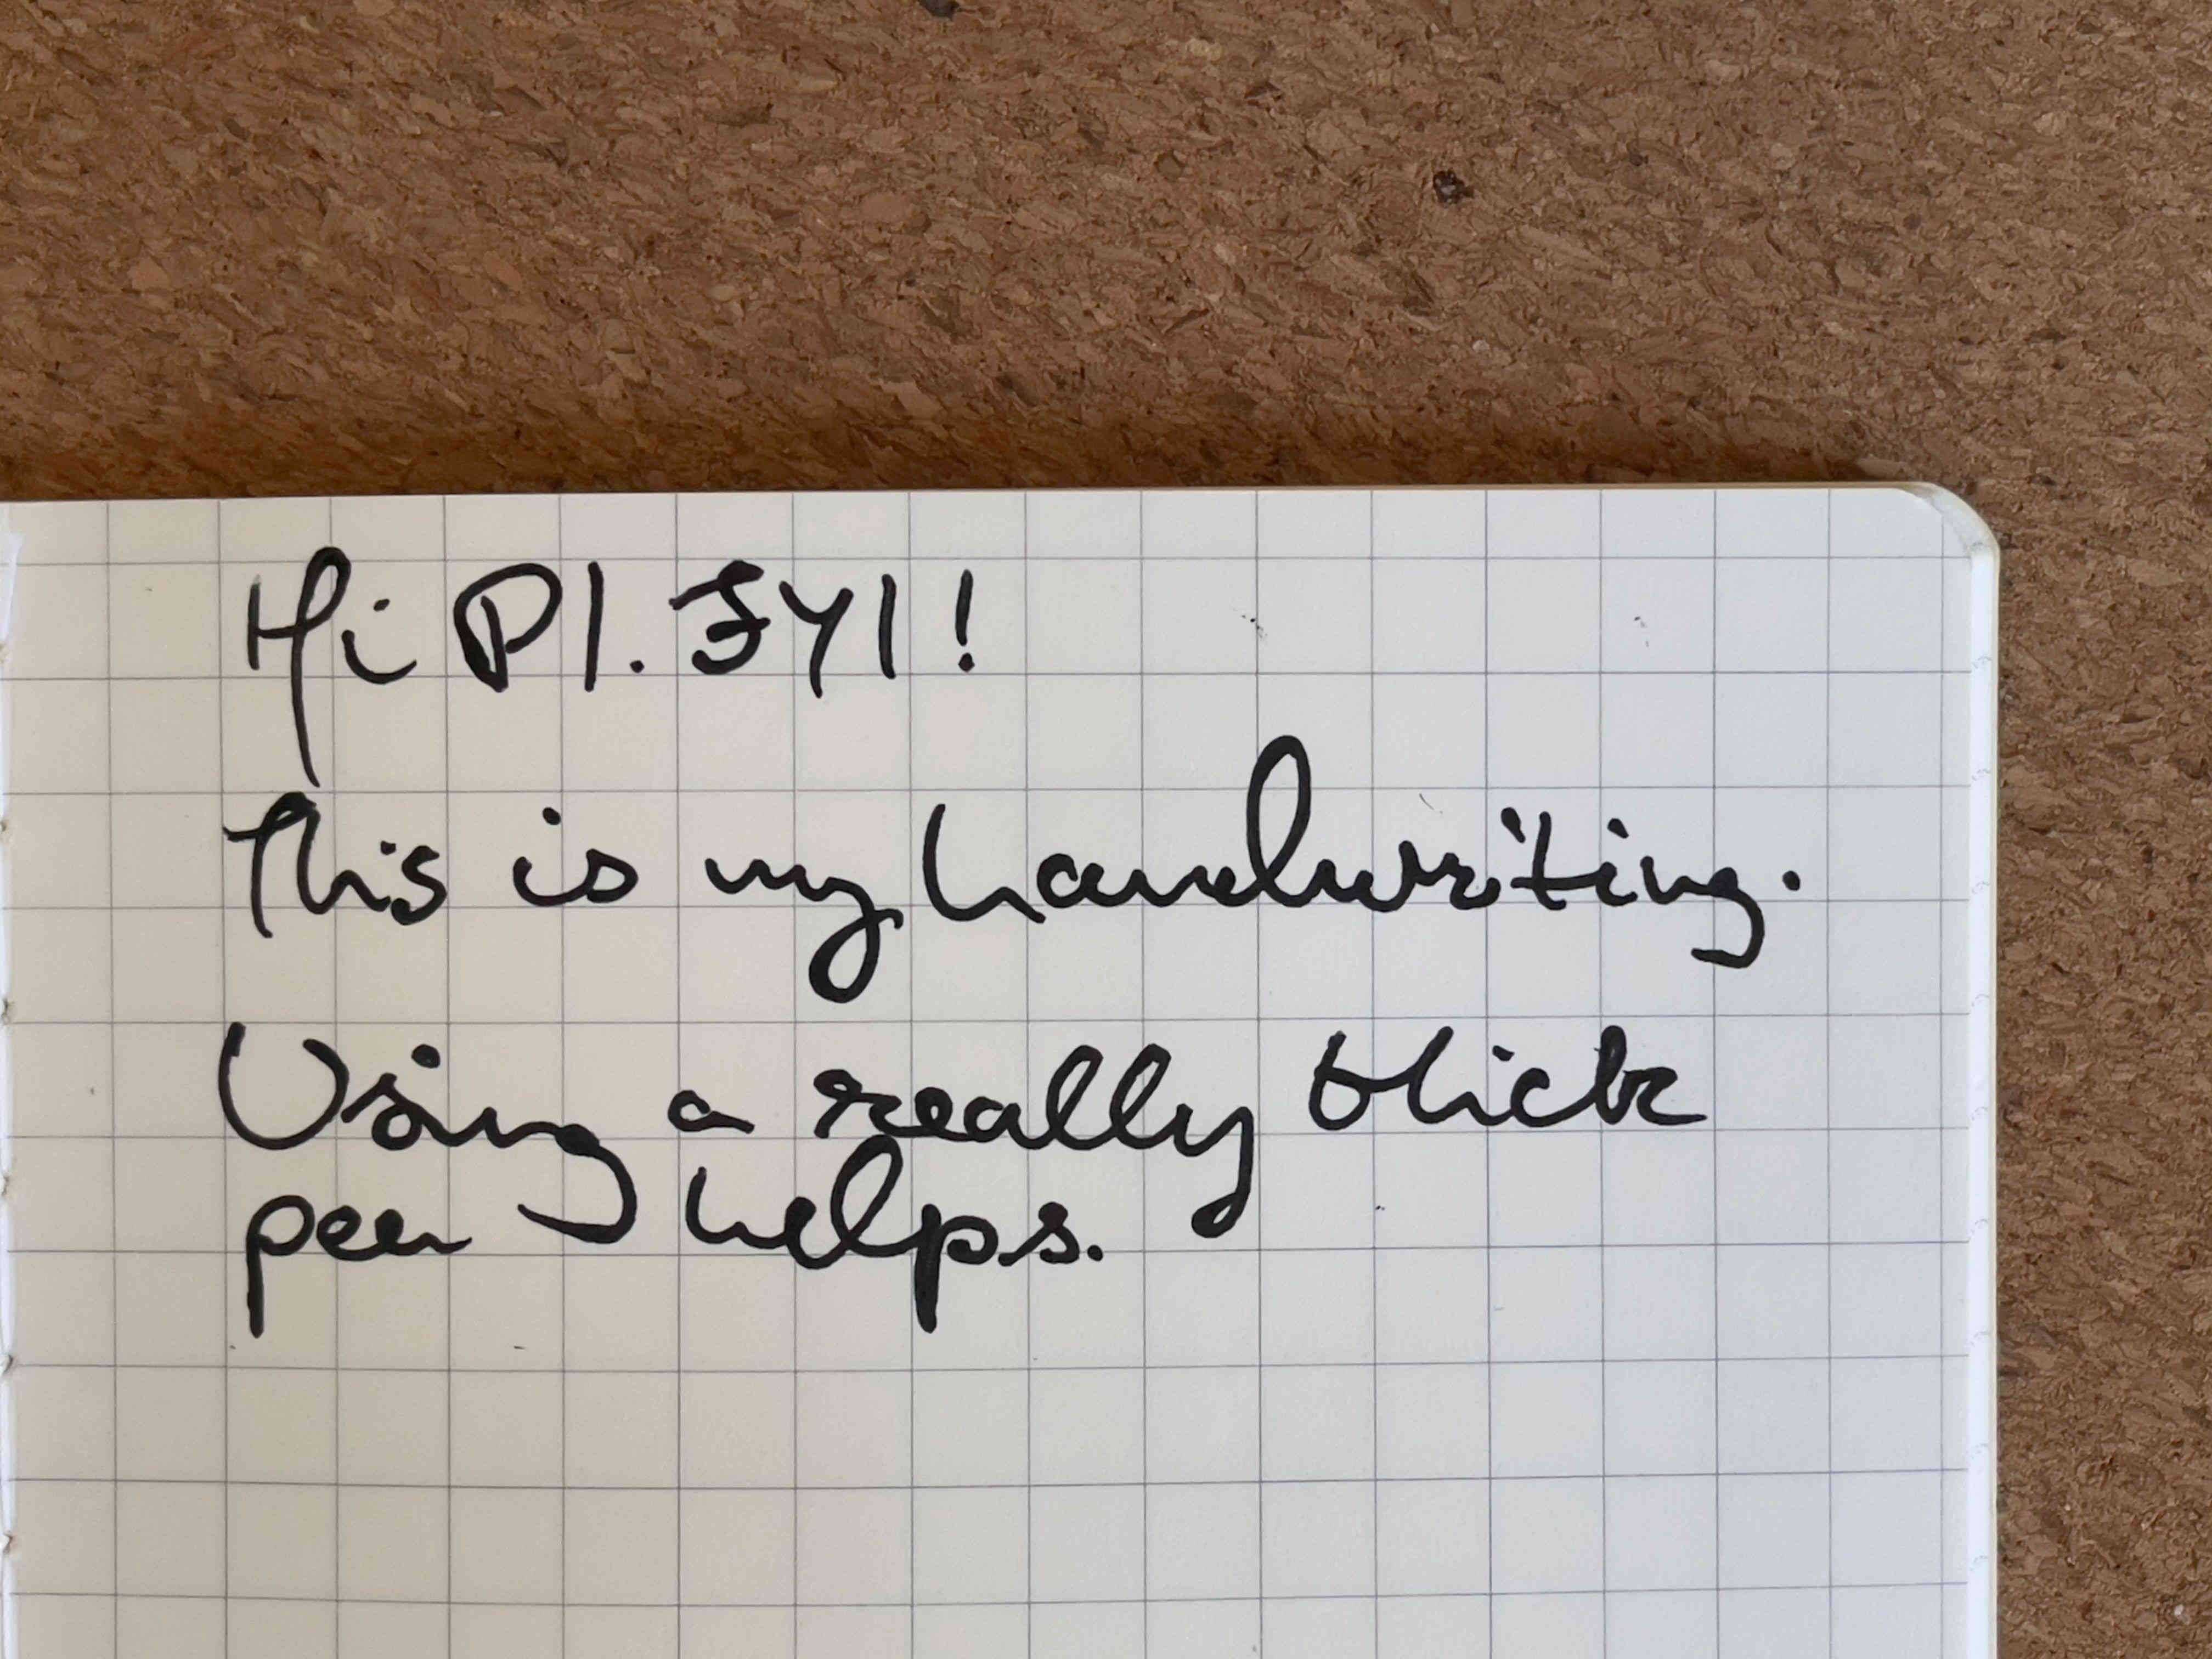 Hi PI. FYI!
This is my handwriting.
Using a really thick
pen helps.